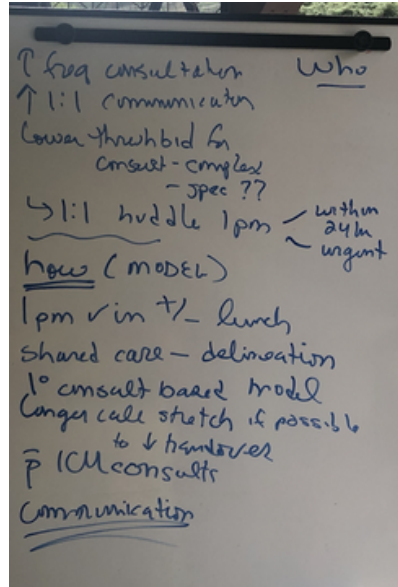 ↑ freq consultation Who
↑ 1:1 communication
Lower threshold for
consult - complex
- spec ??
↳ 1:1 huddle 1pm within
24h
urgent
how (MODEL)
1pm ✓ in +/- lunch
shared care - delineation
1° consult based model
Longer call stretch if possible
to ↓ handover
p̄ ICU consults
Communication